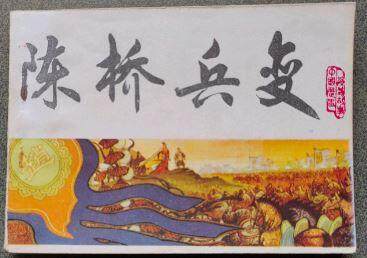 陈桥兵变